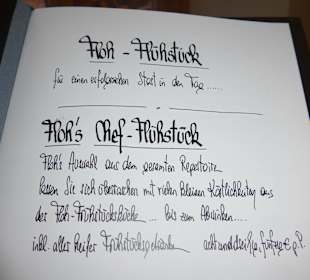 Floh - Flühstück
für einen erfolgreichen Start in den Tag......
Floh's Chef-Flühstück
Floh's Auswahl aus dem gesamten Repertoire
lassen Sie sich überraschen mit vielen kleinen Köstlichkeiten aus
der Floh-Frühstücksküche... bis zum Abwinken....
inkl. aller heißer Frühstücksgetränke achtunddreißig, fünfzig € p.P.